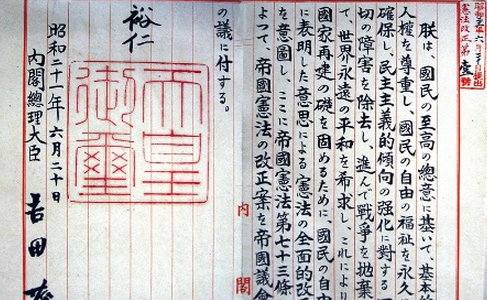 朕は、國民の至高の總意に基いて、基本
人權を尊重し、國民の自由の福祉を永久
確保し、民主主義的傾向の强化に對する一
切の障害を除去し、進んで戰爭を抛棄
て、世界永遠の平和を希求し、これによ
國家再建の礎を固めるために、國民の自由
に表明した意思による憲法の全面的改
を意圖し、ここに帝國憲法第七十三條
よつて、帝國憲法の改正案を帝國議會
の議に付する。
裕仁
天皇御璽
昭和二十一年六月二十日
內閣總理大臣
吉田
內閣
憲法改正第壹號